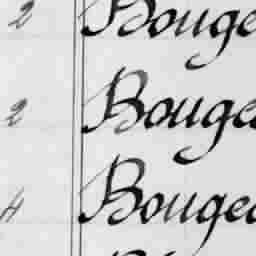 2 Bouge
2 Bougea
4 Bougea